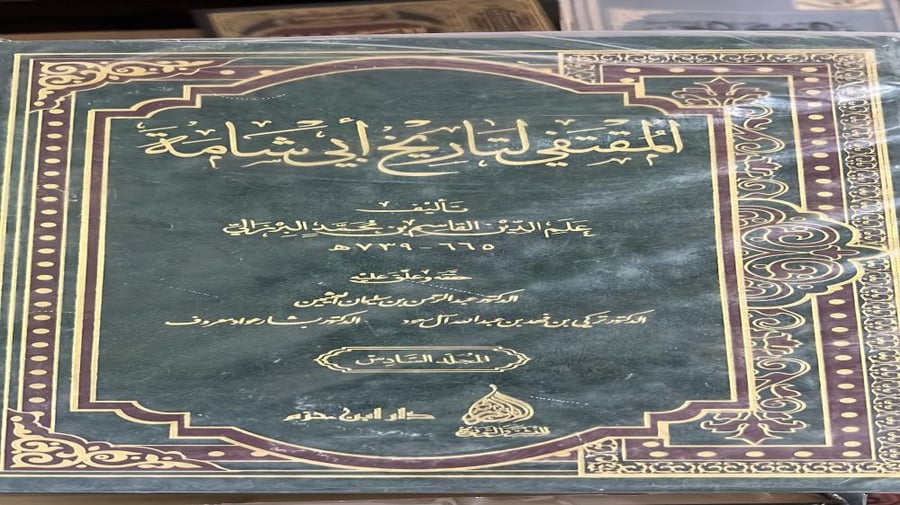 المُقتفي لتاريخ أبي شامة
تأليف
علم الدّين القاسم بن محمّد البِرزالي
٦٦٥ - ٧٣٩هـ
حققه وعلق عليه
الدكتور عبد الرحمن بن سليمان العثيمين
الدكتور تركي بن فهد بن عبد الله آل سعود الدكتور بشار عواد معروف
المجلد السّادس
دار ابن حزم